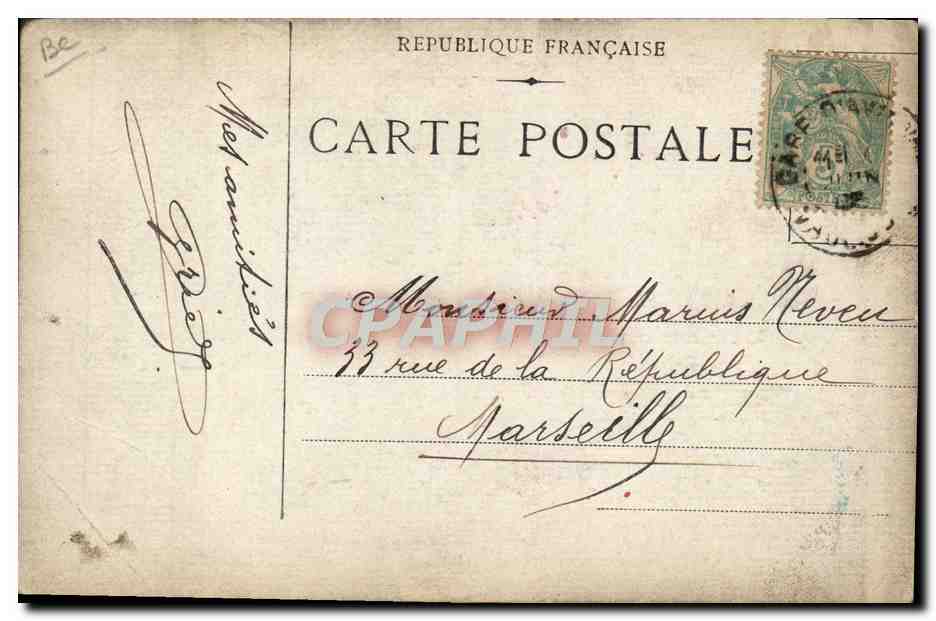 Be
REPUBLIQUE FRANÇAISE
CARTE POSTALE
Mes amitiés
GARE D'AV
5
POSTES
Monsieur Marius Neveu
33 rue de la République
Marseille
CPAPHIL